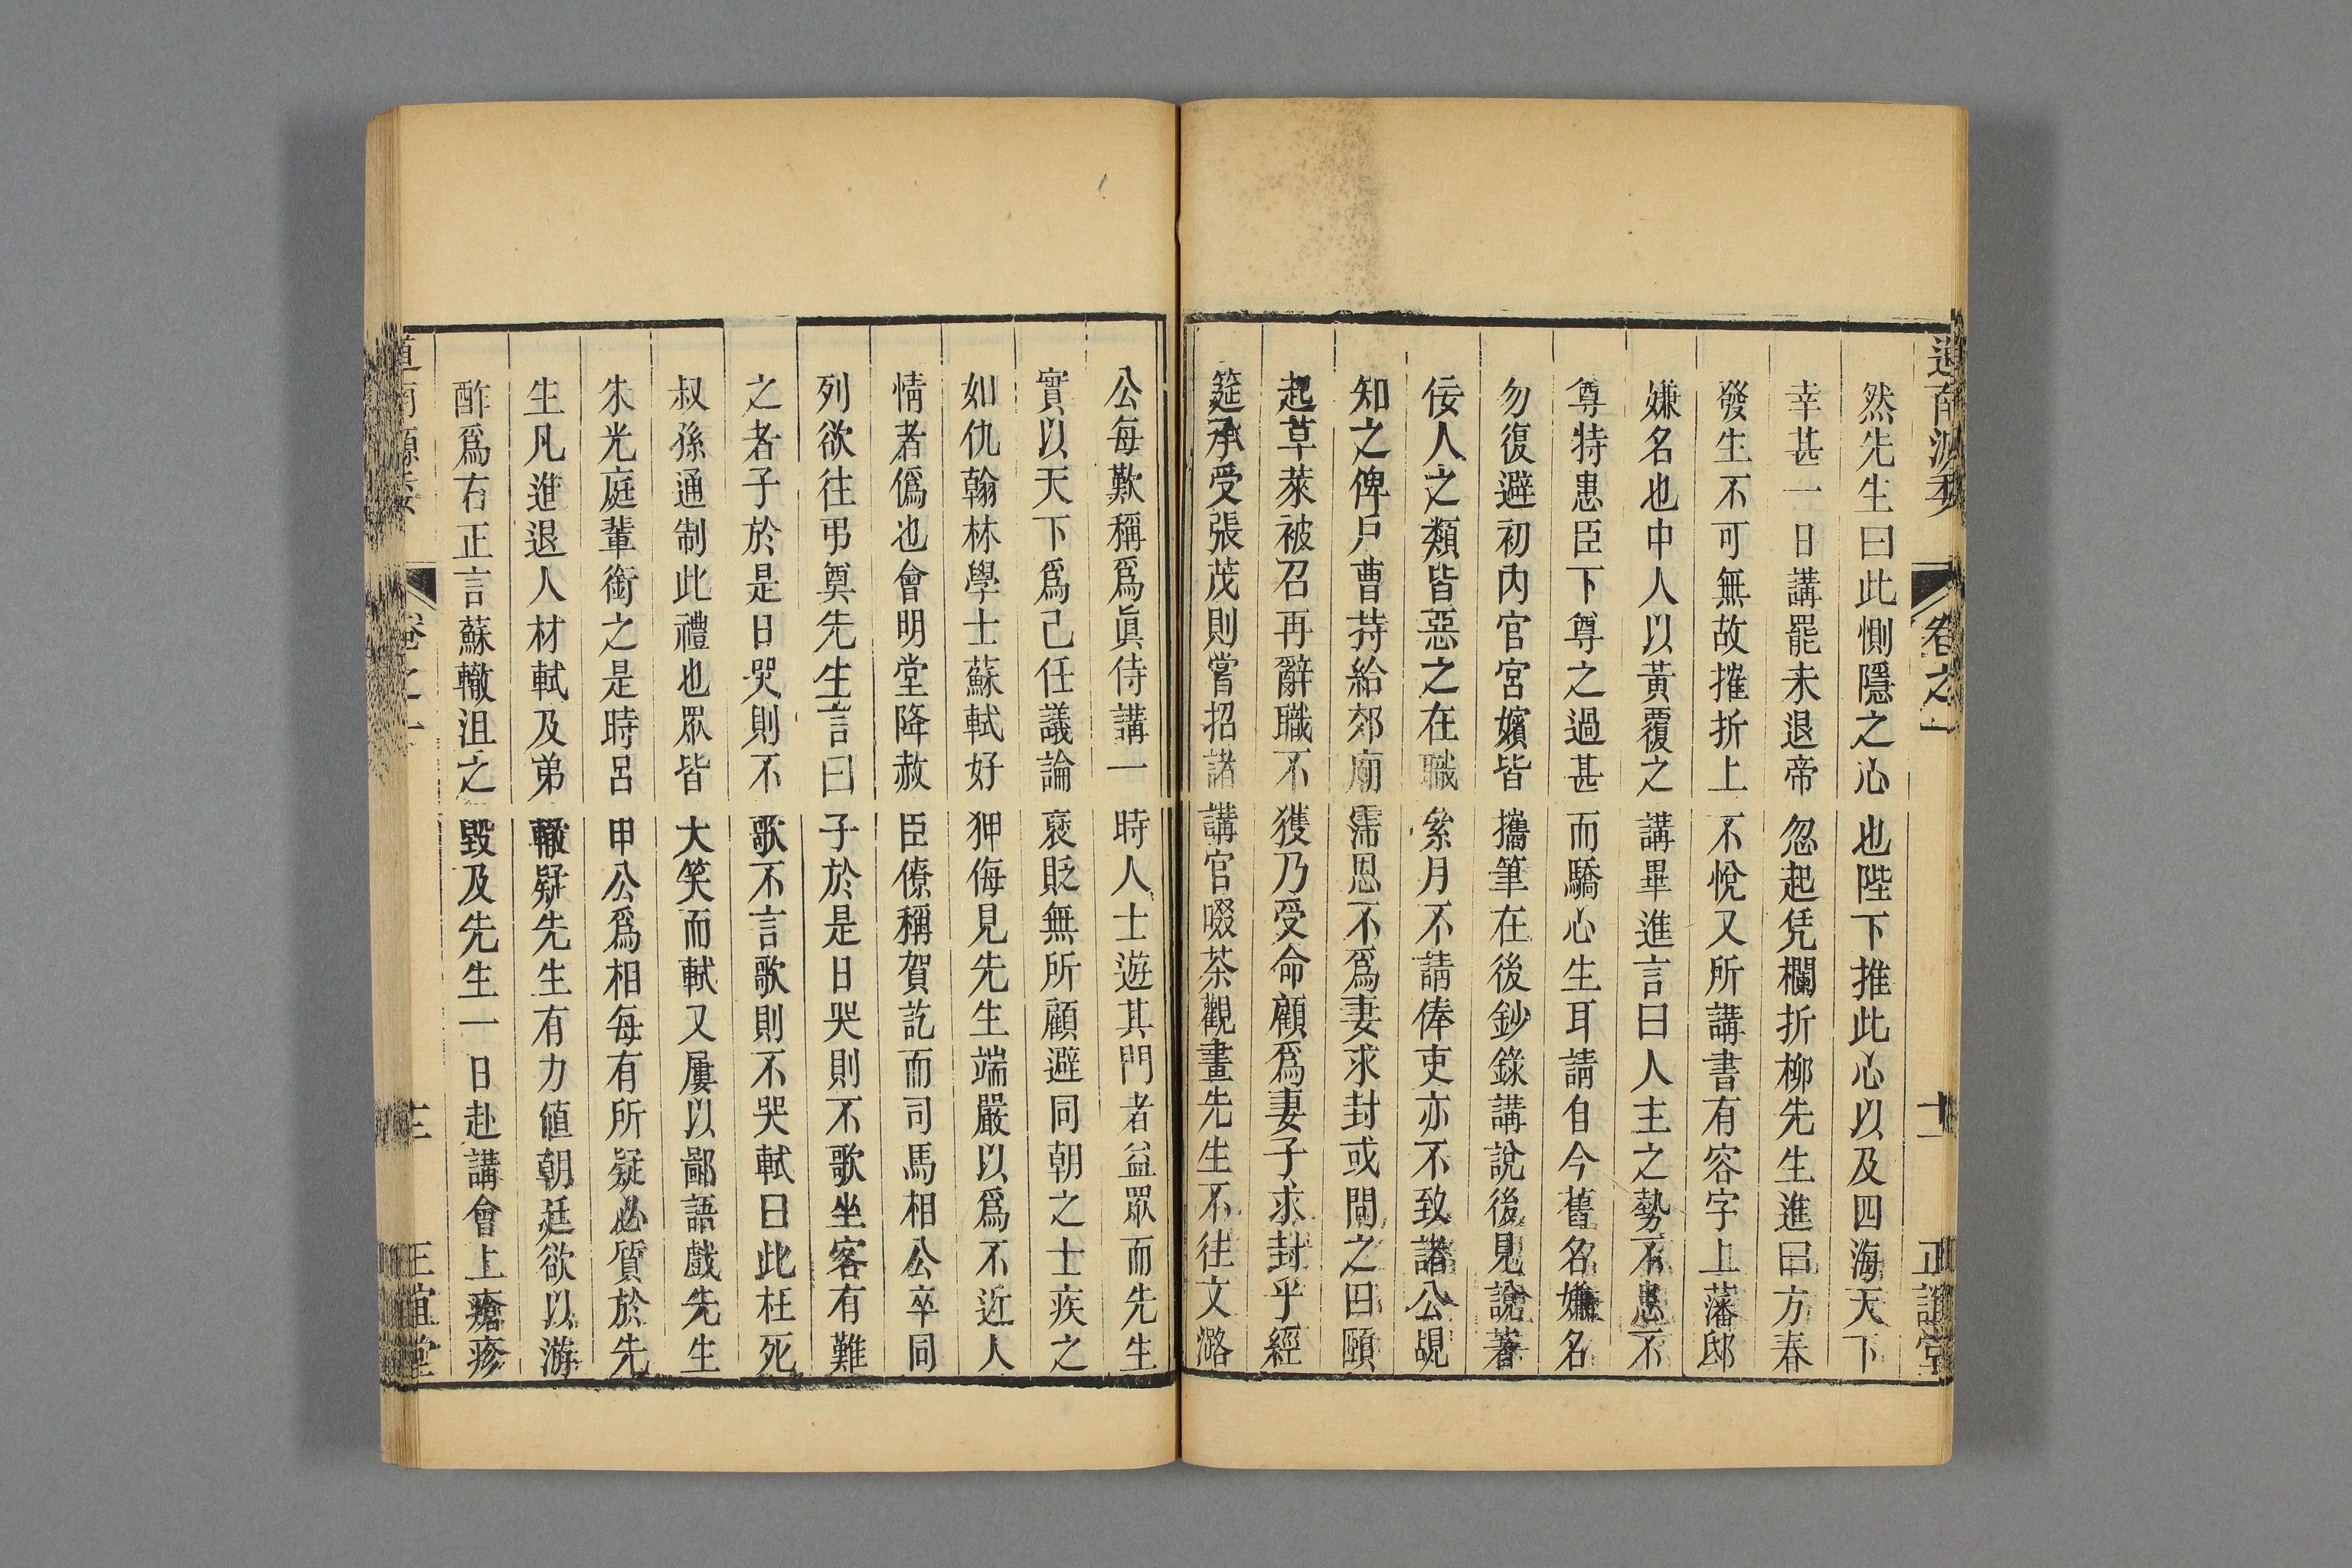 道南源委 卷之一 十二 正誼堂
然先生曰此惻隱之心也陛下推此心以及四海天下
幸甚一日講罷未退帝忽起凭欄折柳先生進曰方春
發生不可無故摧折上不悅又所講書有容字上藩邸
嫌名也中人以黃覆之講畢進言曰人主之勢不患不
尊特患臣下尊之過甚而驕心生耳請自今舊名嫌名
勿復避初內官宮嬪皆攜筆在後鈔錄講說後見說著
佞人之類皆惡之在職累月不請俸吏亦不致諸公覘
知之俾戶曹持給郊廟霈恩不為妻求封或問之曰頤
起草萊被召再辭職不獲乃受命顧為妻子求封乎經
筵承受張茂則嘗招諸講官啜茶觀畫先生不往文潞
公每歎稱為眞侍講一時人士遊其門者益眾而先生
實以天下為己任議論褒貶無所顧避同朝之士疾之
如仇翰林學士蘇軾好狎侮見先生端嚴以為不近人
情者僞也會明堂降赦臣僚稱賀訖而司馬相公卒同
列欲往弔奠先生言曰子於是日哭則不歌坐客有難
之者子於是日哭則不歌不言歌則不哭軾曰此枉死
叔孫通制此禮也眾皆大笑而軾又屢以鄙語戲先生
朱光庭輩銜之是時呂申公為相每有所疑必質於先
生凡進退人材軾及弟轍疑先生有力値朝廷欲以游
酢為右正言蘇轍沮之毀及先生一日赴講會上瘡疹
道南源委 卷之一 三 正誼堂